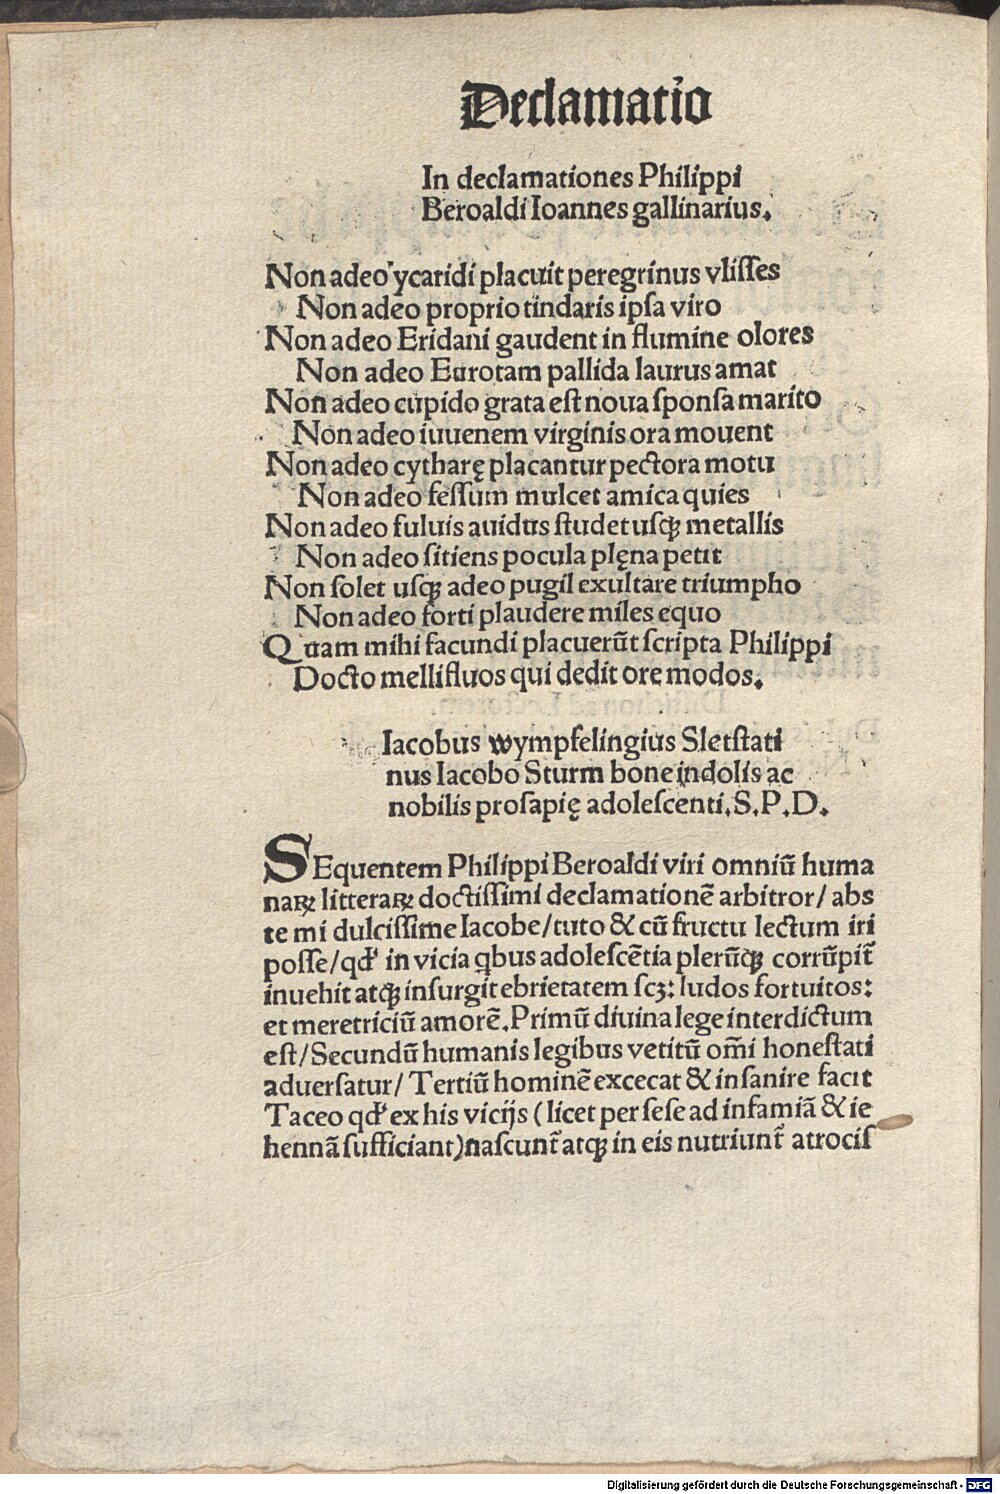 Declamatio
In declamationes Philippi
Beroaldi Ioannes gallinarius.
Non adeo ycaridi placuit peregrinus vliſſes
Non adeo proprio tindaris ipſa viro
Non adeo Eridani gaudent in flumine olores
Non adeo Eurotam pallida laurus amat
Non adeo cupido grata eſt noua ſponſa marito
Non adeo iuuenem virginis ora mouent
Non adeo cytharę placantur pectora motu
Non adeo feſſum mulcet amica quies
Non adeo fuluis auidus ſtudet uſqꝫ metallis
Non adeo ſitiens pocula plęna petit
Non ſolet uſqꝫ adeo pugil exultare triumpho
Non adeo forti plaudere miles equo
Quam mihi facundi placuerūt ſcripta Philippi
Docto mellifluos qui dedit ore modos.
Iacobus wympfelingius Sletſtati
nus Iacobo Sturm bone indolis ac
nobilis proſapię adoleſcenti.S.P.D.
SEquentem Philippi Beroaldi viri omniū huma
naꝝ litteraꝝ doctiſſimi declamationē arbitror/ abs
te mi dulciſſime Iacobe/tuto & cū fructu lectum iri
poſſe/qđ in vicia qbus adoleſcētia plerūqꝫ corrūpit̃
inuehit atqꝫ inſurgit ebrietatem ſcꝫ: ludos fortuitos:
et meretriciū amorē.Primū diuina lege interdictum
eſt/Secundū humanis legibus vetitū om̃i honeſtati
aduerſatur/ Tertiū hominē excecat & inſanire facit
Taceo qđ ex his vicijs (licet per ſeſe ad infamiā & ie
hennā ſufficiant)naſcunt̃ atqꝫ in eis nutriunt̃ atrociſ
Digitalisierung gefördert durch die Deutsche Forschungsgemeinschaft - DFG